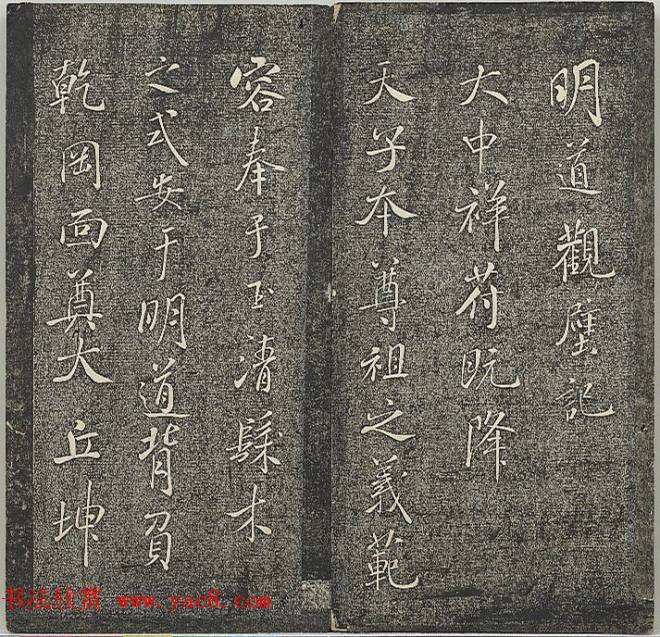 明道觀壁記
大中祥符既降
天子本尊祖之義範
容奉于玉清髹木
之式安于明道背負
乾岡面奠大丘坤
书法欣赏 www.yac8.com